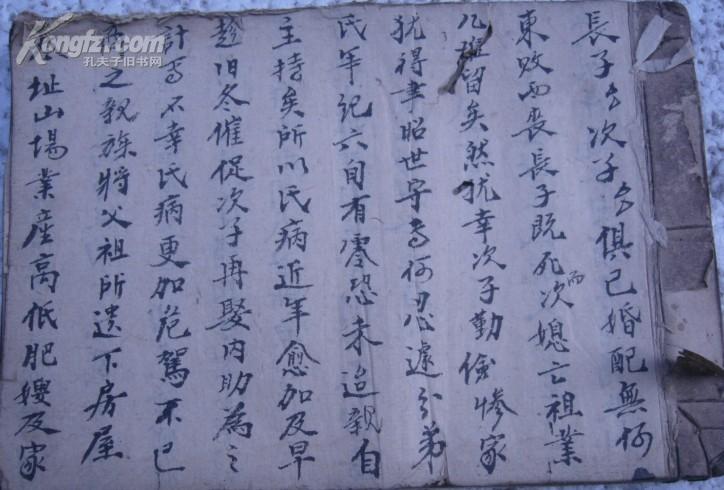 Kongfz.com
孔夫子旧书网
長子厶次子厶俱已婚配無何
東敗西喪長子既死次媳
而
亡祖業
几难留矣然犹幸次子勤儉惨家
犹得幸昭世守焉何忍遽分弟
氏年记六旬有零恐未迨親自
主持矣所以氏病近年愈加及早
趁旧冬催促次子再娶内助為之
計焉不幸氏病更加危駕不已
之親族將父祖所遺下房屋
址山場業産高低肥嫂及家